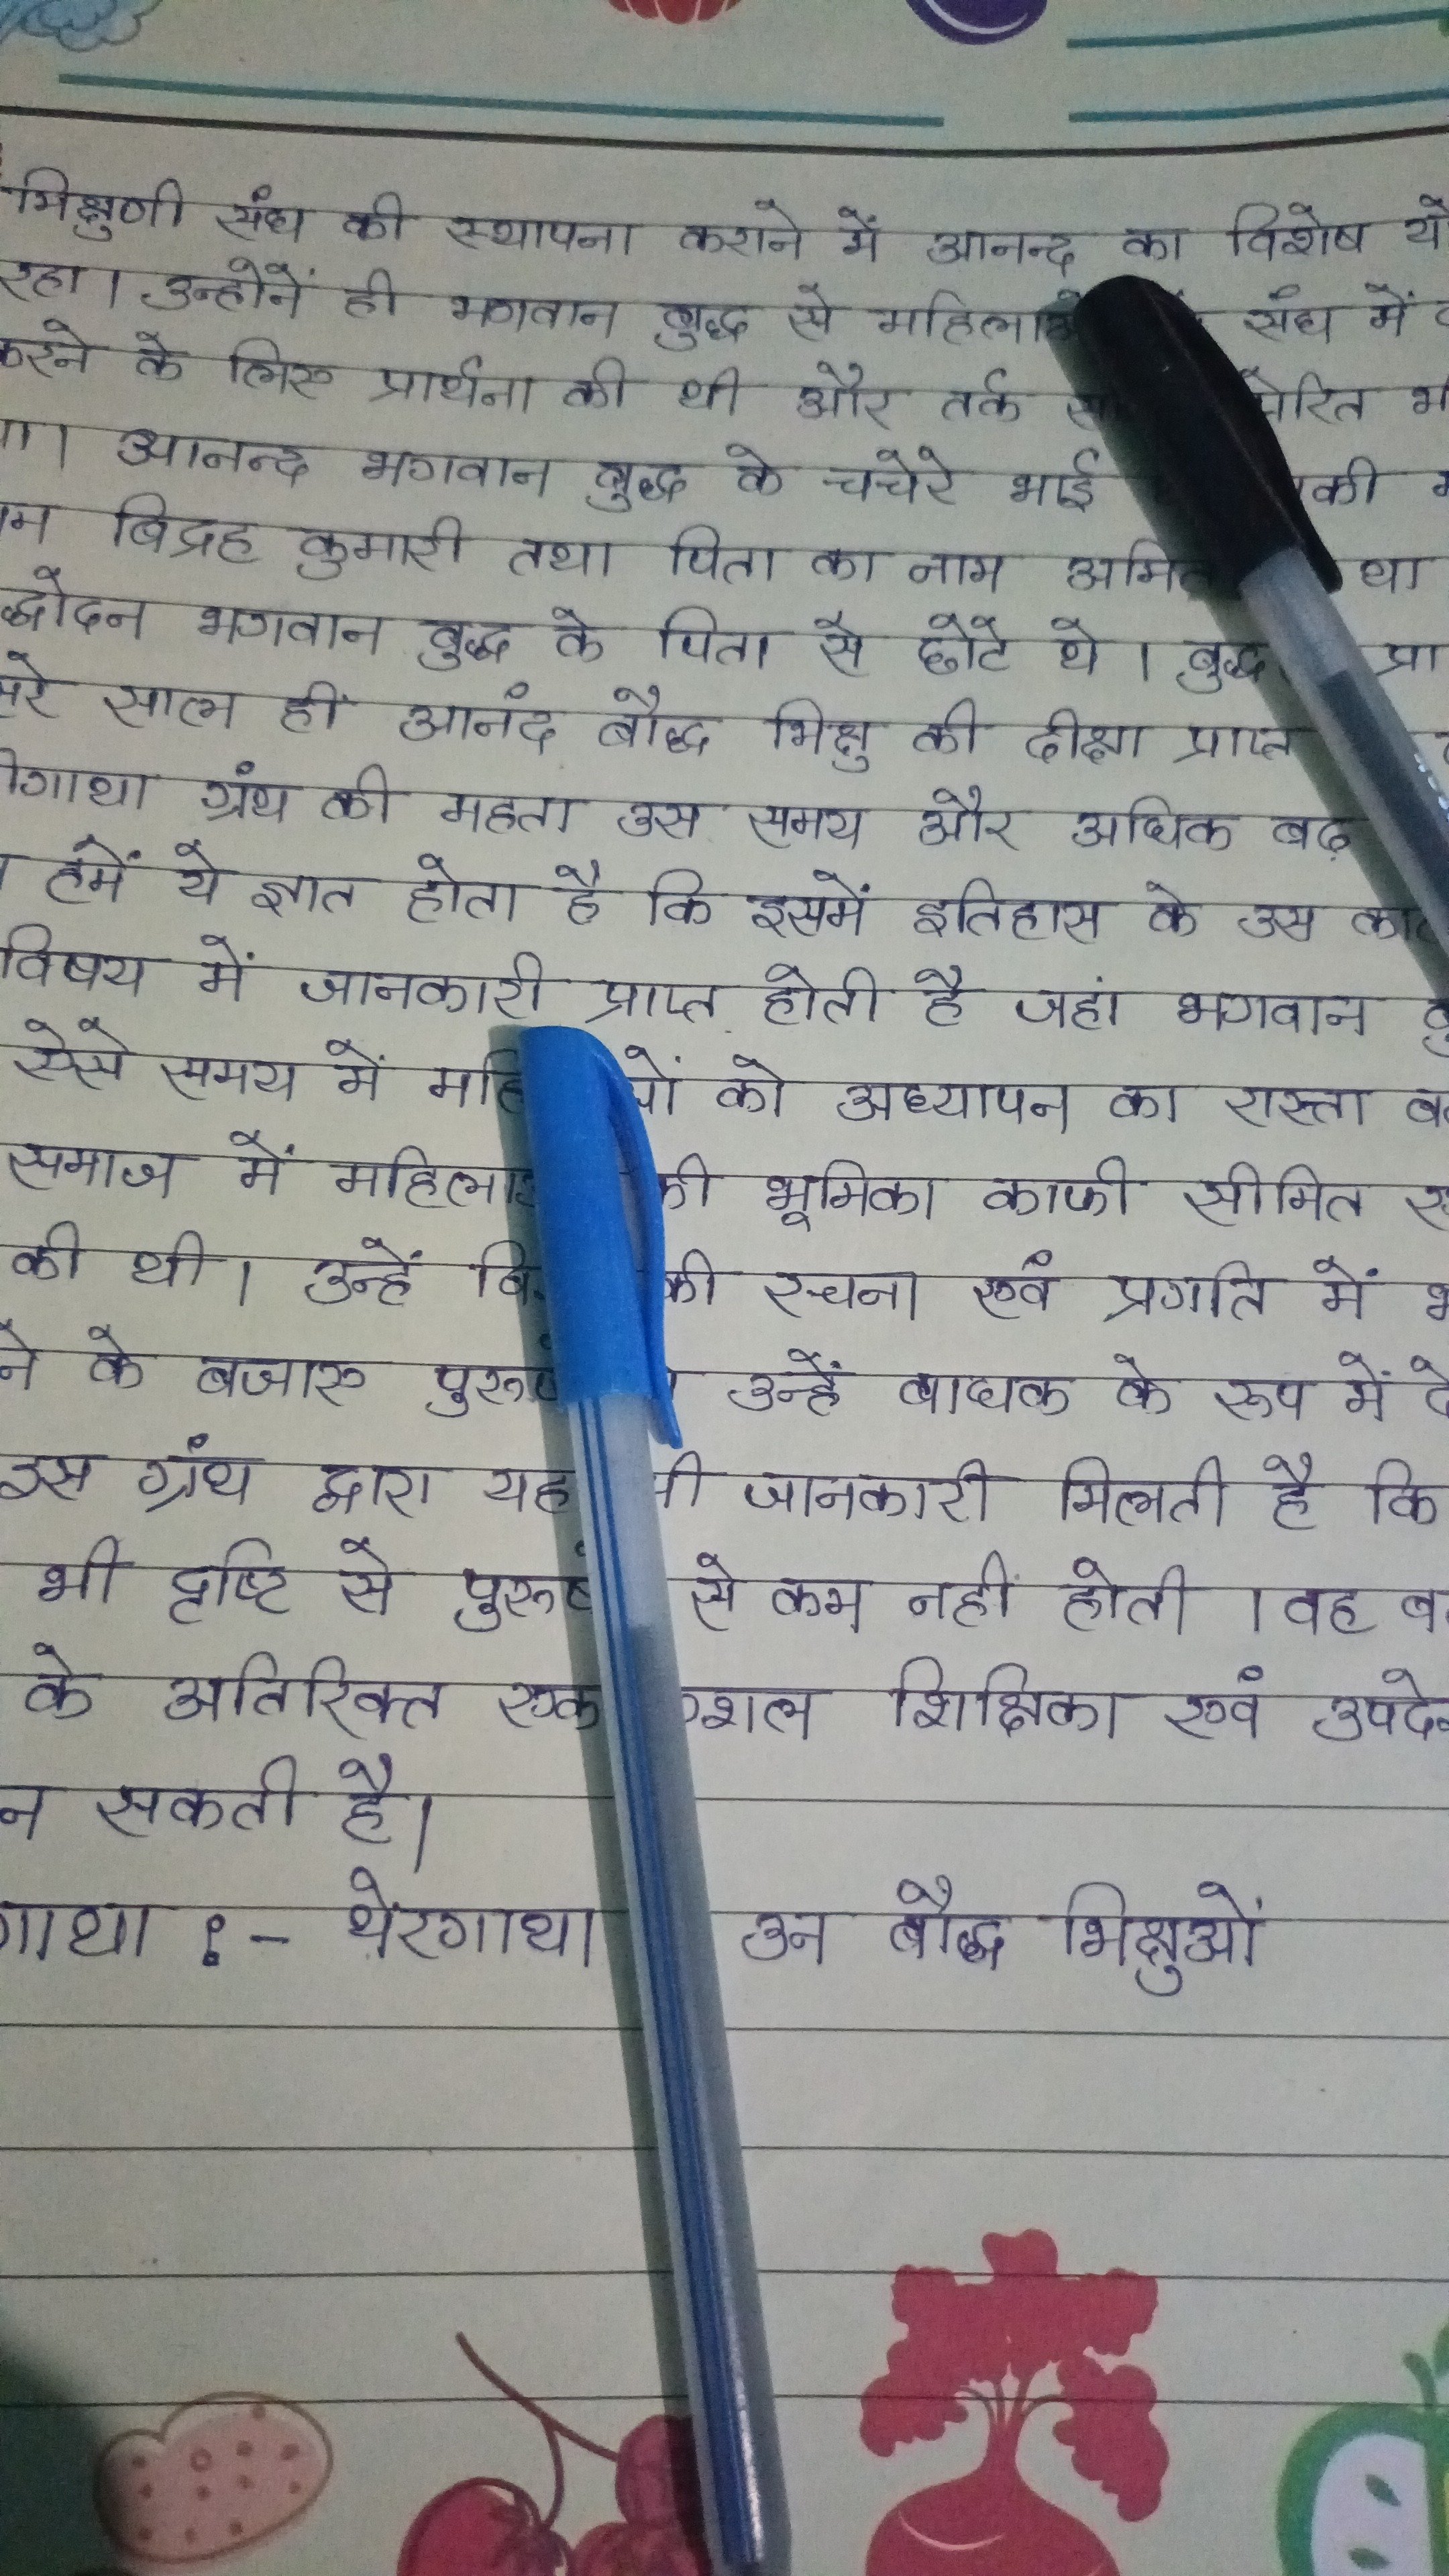 भिक्षुणी संघ की स्थापना कराने में आनन्द का विशेष
रहा। उन्होनें ही भगवान बुद्ध से संघ में
करने के लिए प्रार्थना की थी और तर्क
आनन्द भगवान बुद्ध के चचेरे भाई
बिद्रह कुमारी तथा पिता का नाम था
भगवान बुद्ध के पिता से छोटे थे। बुद्ध
साल ही आनंद बौद्ध भिक्षु की दीक्षा प्राप्त
ग्रंथ की महता उस समय और अधिक बढ़
हमें ये ज्ञात होता है कि इसमें इतिहास के उस
विषय में जानकारी प्राप्त होती है जहां भगवान
ऐसे समय में को अध्यापन का रास्ता
समाज में की भूमिका काफी सीमित
की थी। उन्हें की रचना एवं प्रगति में
के बजाए उन्हें बाधक के रूप में
इस ग्रंथ द्वारा यह जानकारी मिलती है कि
भी दृष्टि से से कम नहीं होती । वह
के अतिरिक्त एक शिक्षिका एवं
सकती है।
थेरगाथा उन बौद्ध भिक्षुओं